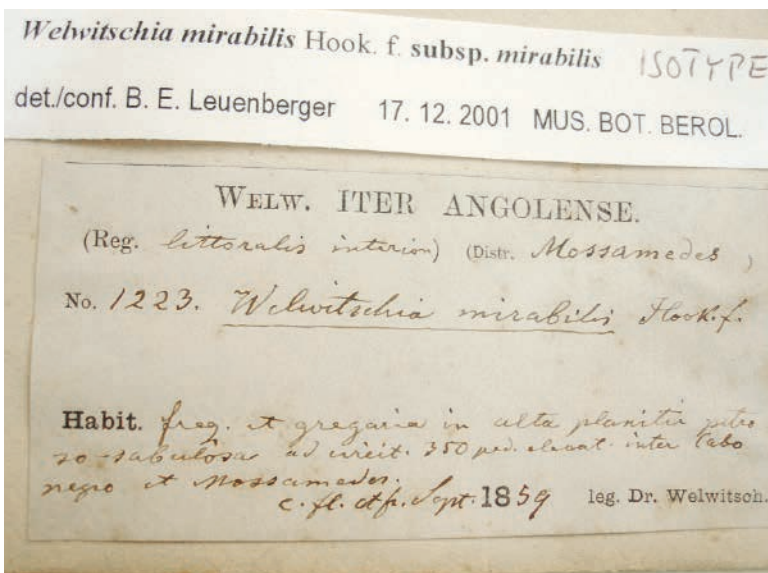 Welwitschia mirabilis Hook. f. subsp. mirabilis ISOTYPE
det./conf. B. E. Leuenberger 17. 12. 2001 MUS. BOT. BEROL.
WELW. ITER ANGOLENSE.
(Reg. littoralis interior) (Distr. Mossamedes )
No. 1223. Welwitschia mirabilis Hook.f.
Habit. freq. et gregaria in alta planitie petro
so-sabulosa ad circit. 350 ped. elevat. inter Cabo
negro et Mossamedes.
c. fl. et fr. Sept. 1859 leg. Dr. Welwitsch.